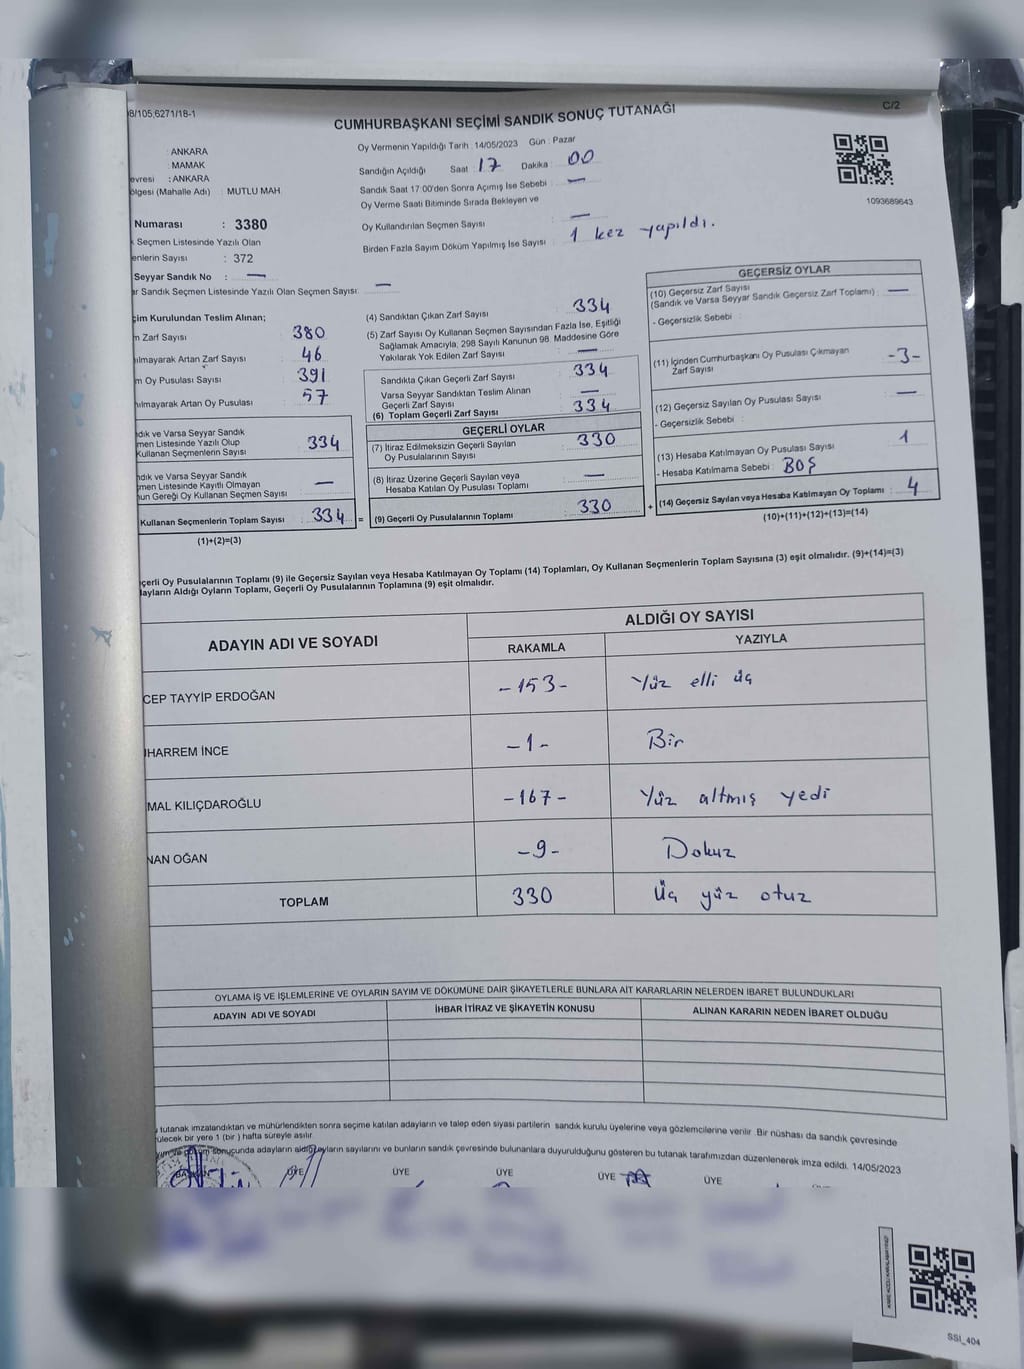 8/105,6271/18-1
C/2
CUMHURBAŞKANI SEÇİMİ SANDIK SONUÇ TUTANAĞI
: ANKARA
: MAMAK
evresi : ANKARA
ölgesi (Mahalle Adı) : MUTLU MAH
Numarası : 3380
Seçmen Listesinde Yazılı Olan
enlerin Sayısı : 372
Seyyar Sandık No : —
ar Sandık Seçmen Listesinde Yazılı Olan Seçmen Sayısı: —
Oy Vermenin Yapıldığı Tarih : 14/05/2023 Gün : Pazar
Sandığın Açıldığı Saat : 17 Dakika : 00
Sandık Saat 17:00'den Sonra Açımış Ise Sebebi : —
Oy Verme Saati Bitiminde Sırada Bekleyen ve
Oy Kullandırılan Seçmen Sayısı : —
Birden Fazla Sayım Döküm Yapılmış Ise Sayısı : 1 kez yapıldı.
1093689643
çim Kurulundan Teslim Alınan;
n Zarf Sayısı : 380
ılmayarak Artan Zarf Sayısı : 46
m Oy Pusulası Sayısı : 391
ılmayarak Artan Oy Pusulası : 57
ndık ve Varsa Seyyar Sandık
men Listesinde Yazılı Olup
Kullanan Seçmenlerin Sayısı : 334
ndık ve Varsa Seyyar Sandık
men Listesinde Kayıtlı Olmayan
un Gereği Oy Kullanan Seçmen Sayısı : —
Kullanan Seçmenlerin Toplam Sayısı : 334 =
(1)+(2)=(3)
(4) Sandıktan Çıkan Zarf Sayısı : 334
(5) Zarf Sayısı Oy Kullanan Seçmen Sayısından Fazla Ise, Eşitliği
Sağlamak Amacıyla, 298 Sayılı Kanunun 98. Maddesine Göre
Yakılarak Yok Edilen Zarf Sayısı : —
Sandıkta Çıkan Geçerli Zarf Sayısı : 334
Varsa Seyyar Sandıktan Teslim Alınan
Geçerli Zarf Sayısı : —
(6) Toplam Geçerli Zarf Sayısı : 334
GEÇERLİ OYLAR
(7) İtiraz Edilmeksizin Geçerli Sayılan
Oy Pusulalarının Sayısı : 330
(8) İtiraz Üzerine Geçerli Sayılan veya
Hesaba Katılan Oy Pusulası Toplamı : —
(9) Geçerli Oy Pusulalarının Toplamı : 330 +
GEÇERSİZ OYLAR
(10) Geçersiz Zarf Sayısı
(Sandık ve Varsa Seyyar Sandık Geçersiz Zarf Toplamı) : —
- Geçersizlik Sebebi :
(11) İçinden Cumhurbaşkanı Oy Pusulası Çıkmayan
Zarf Sayısı : -3-
(12) Geçersiz Sayılan Oy Pusulası Sayısı : —
- Geçersizlik Sebebi :
(13) Hesaba Katılmayan Oy Pusulası Sayısı : 1
- Hesaba Katılmama Sebebi : BOŞ
(14) Geçersiz Sayılan veya Hesaba Katılmayan Oy Toplamı : 4
(10)+(11)+(12)+(13)=(14)
çerli Oy Pusulalarının Toplamı (9) ile Geçersiz Sayılan veya Hesaba Katılmayan Oy Toplamı (14) Toplamları, Oy Kullanan Seçmenlerin Toplam Sayısına (3) eşit olmalıdır. (9)+(14)=(3)
layların Aldığı Oyların Toplamı, Geçerli Oy Pusulalarının Toplamına (9) eşit olmalıdır.
ADAYIN ADI VE SOYADI
ALDIĞI OY SAYISI
RAKAMLA YAZIYLA
CEP TAYYİP ERDOĞAN -153- Yüz elli üç
HARREM İNCE -1- Bir
MAL KILIÇDAROĞLU -167- Yüz altmış yedi
NAN OĞAN -9- Dokuz
TOPLAM 330 Üç yüz otuz
OYLAMA İŞ VE İŞLEMLERİNE VE OYLARIN SAYIM VE DÖKÜMÜNE DAİR ŞİKAYETLERLE BUNLARA AİT KARARLARIN NELERDEN İBARET BULUNDUKLARI
ADAYIN ADI VE SOYADI İHBAR İTİRAZ VE ŞİKAYETİN KONUSU ALINAN KARARIN NEDEN İBARET OLDUĞU
tutanak imzalandıktan ve mühürlendikten sonra seçime katılan adayların ve talep eden siyasi partilerin sandık kurulu üyelerine veya gözlemcilerine verilir. Bir nüshası da sandık çevresinde
ülecek bir yere 1 (bir) hafta süreyle asılır.
sonuçunda adayların aldığı oyların sayılarını ve bunların sandık çevresinde bulunanlara duyurulduğunu gösteren bu tutanak tarafımızdan düzenlenerek imza edildi. 14/05/2023
BAŞKAN ÜYE ÜYE ÜYE ÜYE ÜYE
SSI_404